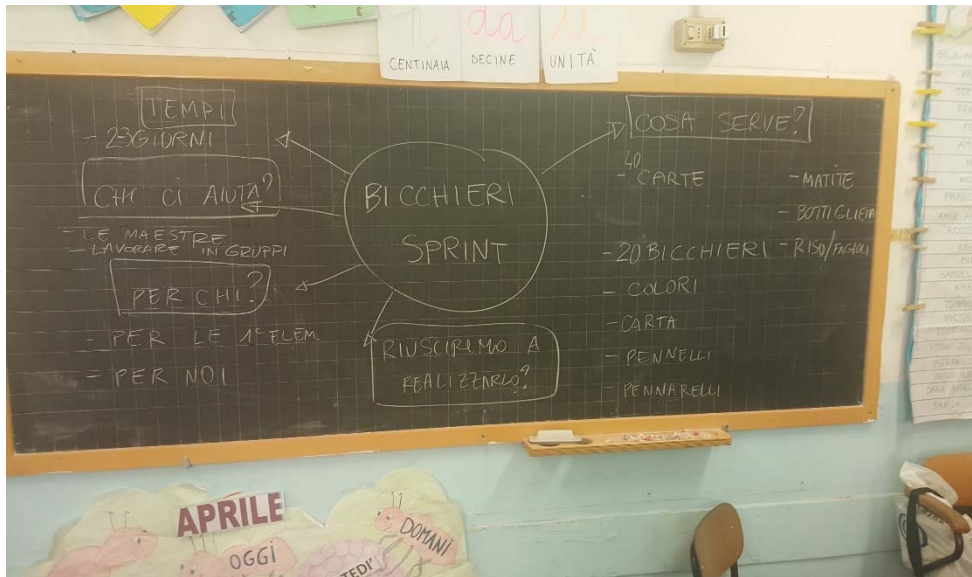 CENTINAIA
DECINE
da
UNITÀ
TEMPI
- 23 GIORNI
CHI CI AIUTA?
- LE MAESTRE
- LAVORARE IN GRUPPI
PER CHI?
- PER LE 1e ELEM.
- PER NOI
BICCHIERI
SPRINT
RIUSCIREMO A
REALIZZARLO?
COSA SERVE?
- 40 CARTE
- 20 BICCHIERI
- COLORI
- CARTA
- PENNELLI
- PENNARELLI
- MATITE
- BOTTIGLIETA
- RISO/FAGIOLI
APRILE
OGGI
DOMANI